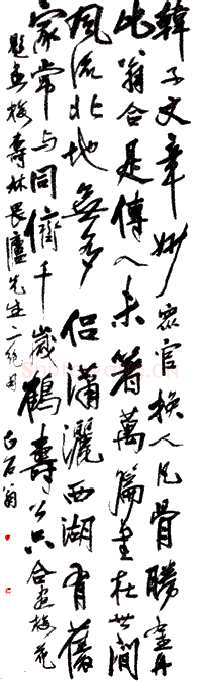 韓子文章妙眾官換人凡骨勝丹
此翁合是傳人未著萬篇書在世間
風流北地無多侶瀟灑西湖有舊
家常与同儕千歲鶴壽公只合畫梅花
題畫梅壽林畏廬先生二絕句 白石翁